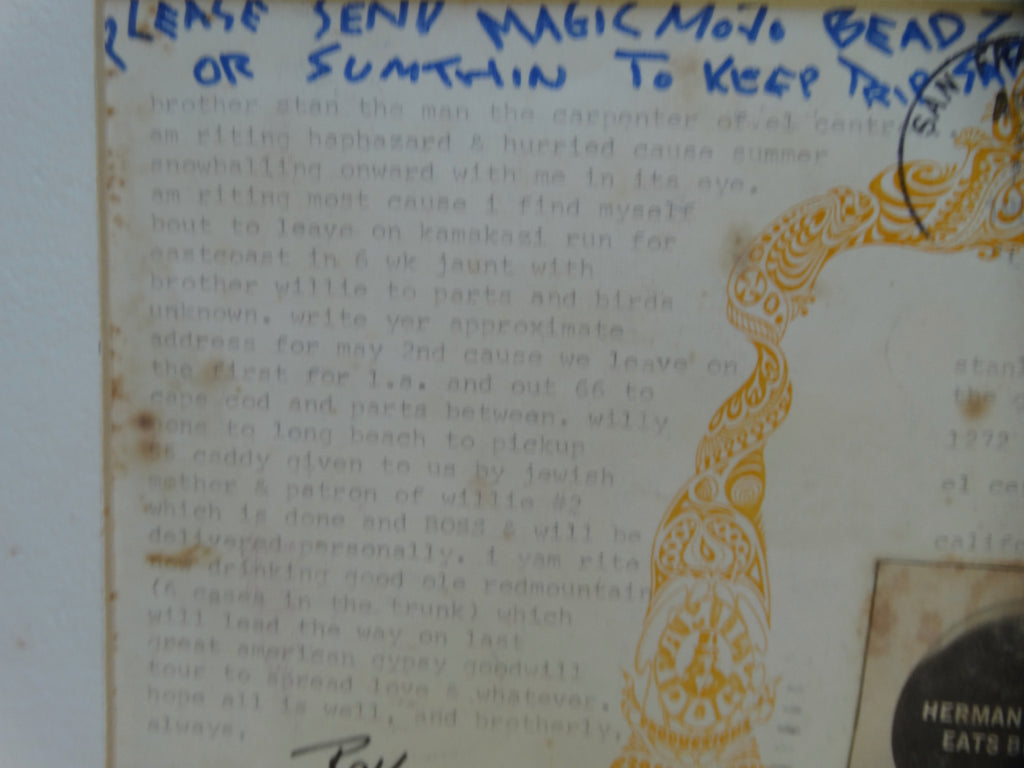 PLEASE SEND MAGIC MOJO BEADZ
OR SUMTHIN TO KEEP TRIP
SAN
brother stan the man the carpenter of el centr
am riting haphazard & hurried cause summer
snowballing onward with me in its eye.
am riting most cause i find myself
bout to leave on kamakazi run for
eastcoast in 6 wk jaunt with
brother willie to parts and birds
unknown. write yer approximate
address for may 2nd cause we leave on
the first for l.a. and out 66 to
cape cod and parts between. willy
to long beach to pickup
caddy given to us by jewish
mother & patron of willie #2
which is done and BOSS & will be
delivered personally. i yam rite
now drinking good ole redmountain
(6 cases in the trunk) which
will lead the way on last
great american gypsy goodwill
tour to spread love & whatever.
hope all is well, and brotherly,
always,
stanl
the
1272
el ce
califo
HERMAN
EATS B